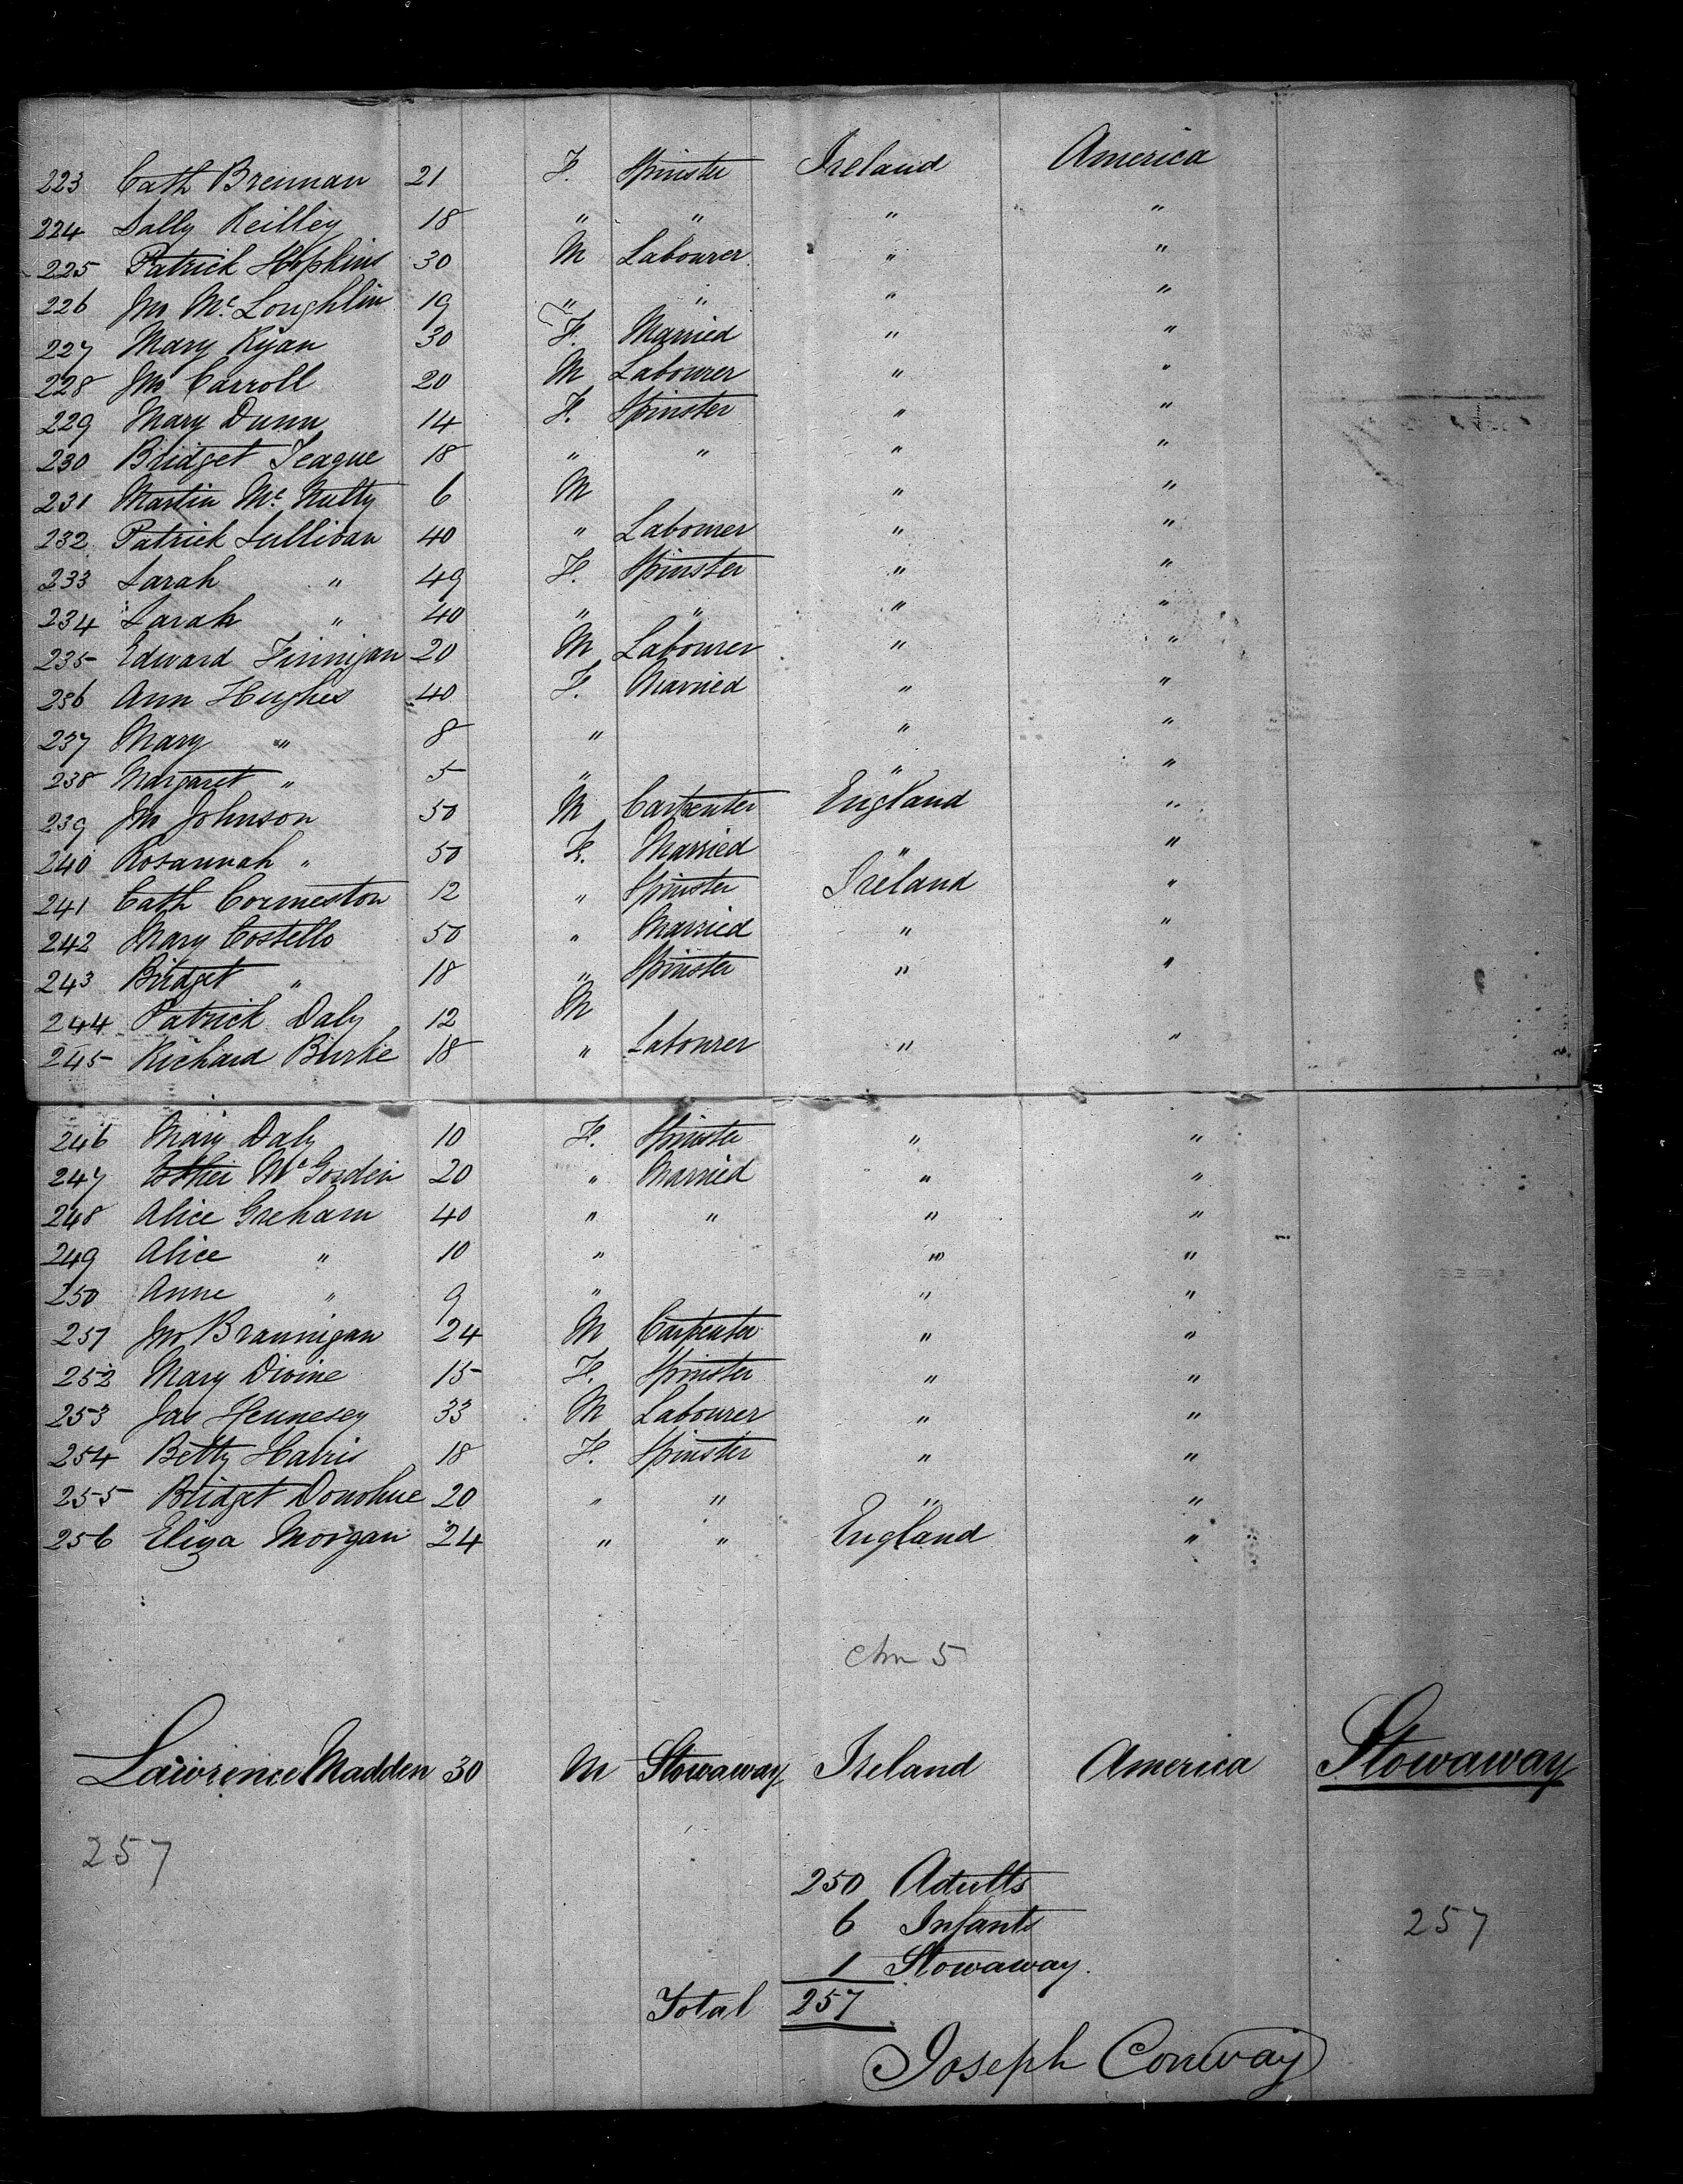 223 Cath Brennan 21 F. Spinster Ireland America
224 Sally Reilley 18 " " " "
225 Patrick Hopkins 30 M Labourer " "
226 Jno McLoughlin 19 " " " "
227 Mary Ryan 30 F. Married " "
228 Jno Carroll 20 M Labourer " "
229 Mary Dunn 14 F. Spinster " "
230 Bridget Teague 18 " " " "
231 Martin McNulty 6 M " "
232 Patrick Sullivan 40 " Labourer " "
233 Sarah " 49 F. Spinster " "
234 Sarah " 40 " " " "
235 Edward Finnigan 20 M Labourer " "
236 Ann Hughes 40 F. Married " "
237 Mary " 8 " " "
238 Margaret " 5 " " "
239 Jno Johnson 50 M Carpenter England "
240 Rosannah " 50 F. Married " "
241 Cath Cormeston 12 " Spinster Ireland "
242 Mary Costello 50 " Married " "
243 Bridget " 18 " Spinster " "
244 Patrick Daly 12 M
245 Richard Burke 18 " Labourer " "
246 Mary Daly 10 F. Spinster " "
247 Esther 20 " Married " "
248 Alice Greham 40 " " " "
249 Alice " 10 " " "
250 Anne " 9 " " "
251 Jno Brannigan 24 M Carpenter " "
252 Mary Divine 15 F. Spinster " "
253 Jas Hennesey 33 M Labourer " "
254 Betty Hatris 18 F. Spinster " "
255 Bridget Donohue 20 " " " "
256 Eliza Morgan 24 " " England "
5
Lawrence Madden 30 M Stowaway Ireland America Stowaway
257
250 Adults
6 Infants 257
1 Stowaway.
Total 257
Joseph Conway